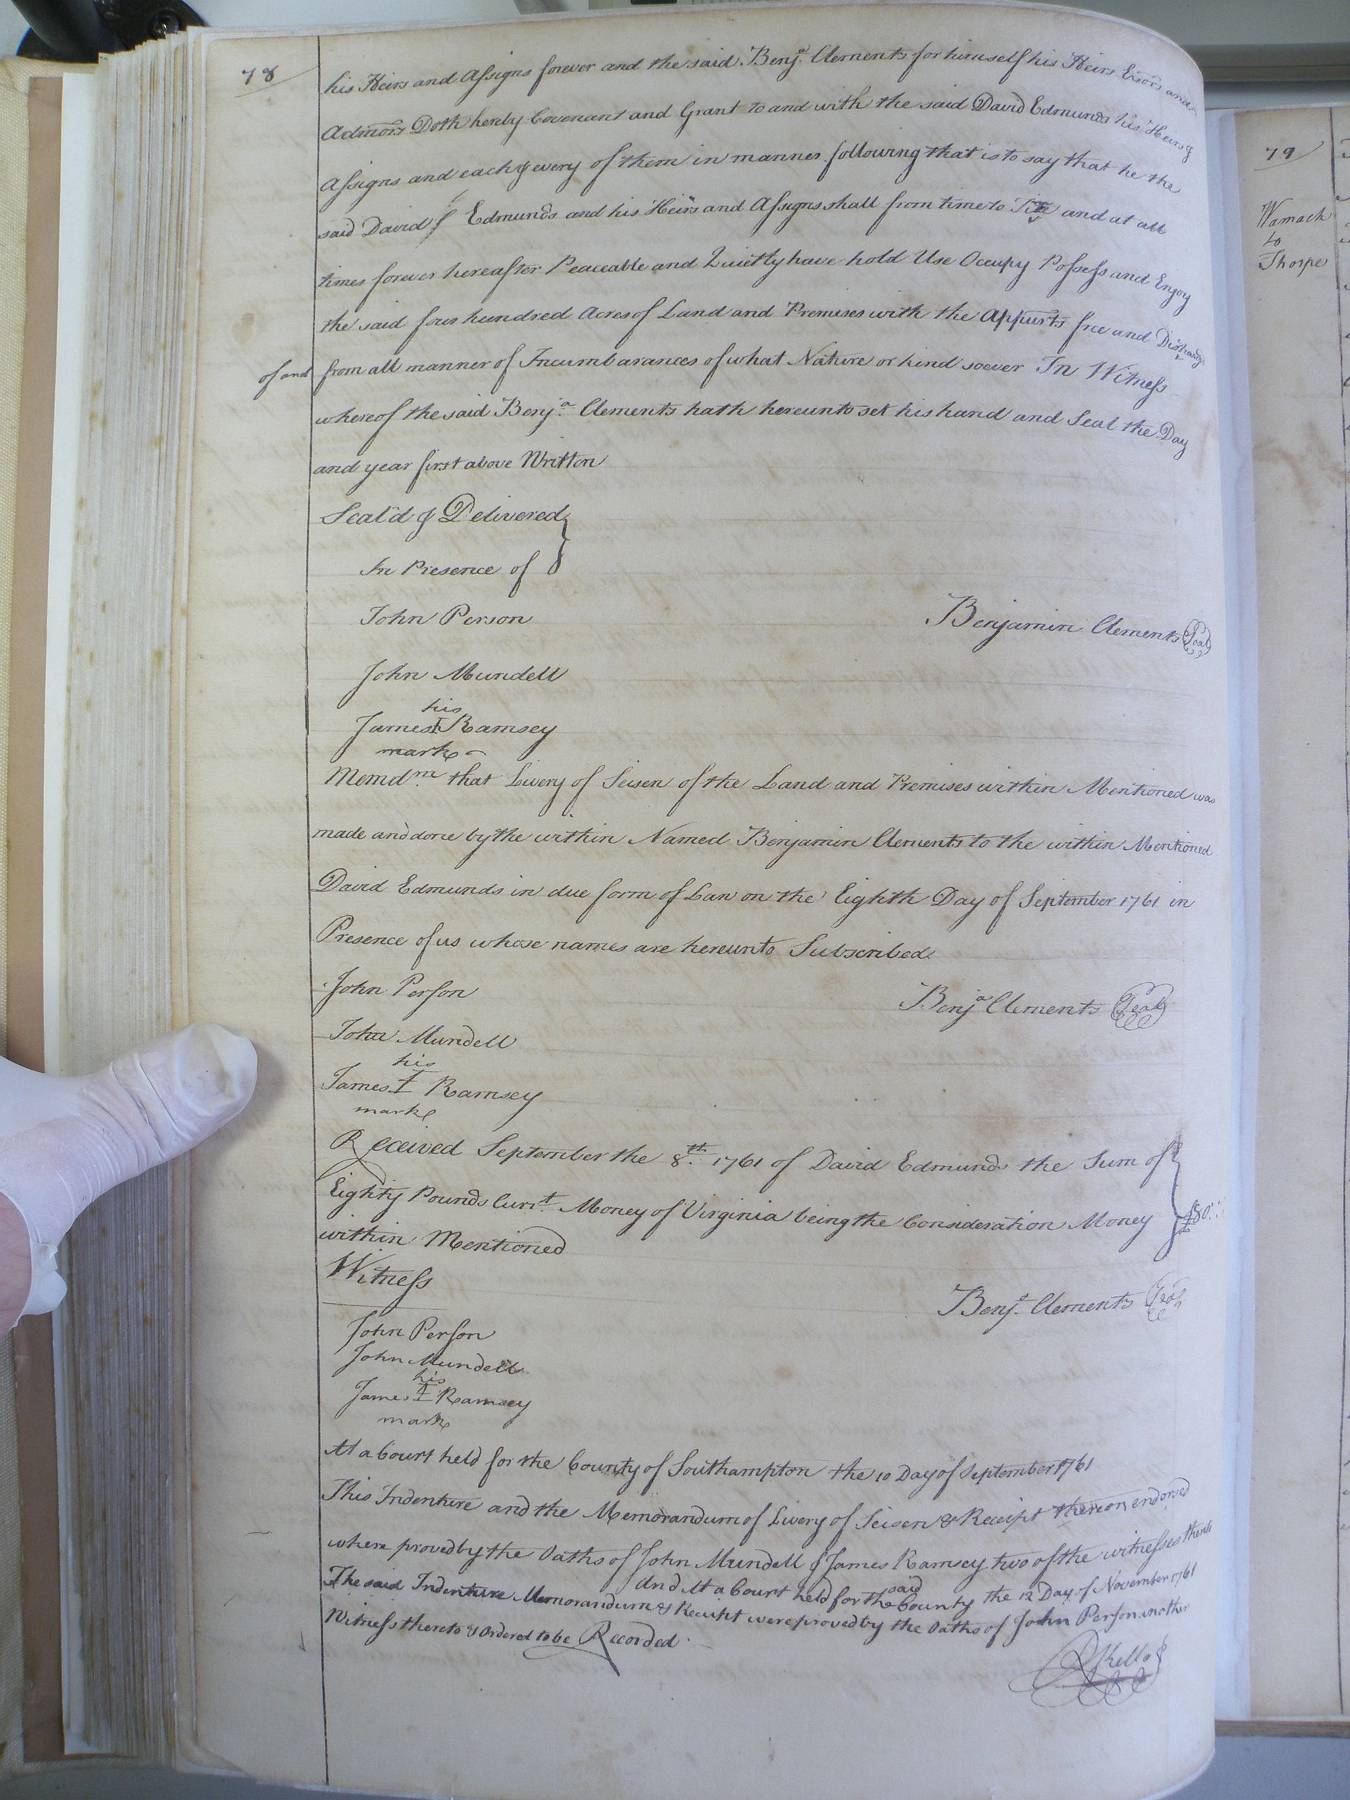 78
his Heirs and Assigns forever and the said Benj.ª Clements for himself his Heirs Exors and
Admors Doth hereby Covenant and Grant to and with the said David Edmunds his Heirs &
Assigns and each & every of them in manner following that is to say that he the
said David Edmunds and his Heirs and Assigns shall from time to and at all
times forever hereafter Peaceable and Quietly have hold Use Occupy Possess and Enjoy
the said four hundred Acres of Land and Premises with the Appurts free and Discharg'd
of and from all manner of Incumbarances of what Nature or kind soever In Witness
whereof the said Benj.ª Clements hath hereunto set his hand and Seal the Day
and year first above Written
Seal'd & Delivered
In Presence of
John Person
Benjamin Clements Seal
John Mundell
his
James I Ramsey
mark
Memd.m that Livery of Seisen of the Land and Premises within Mentioned was
made and done by the within Named Benjamin Clements to the within Mentioned
David Edmunds in due form of Law on the Eighth Day of September 1761 in
Presence of us whose names are hereunto Subscribed
John Person
Benj.ª Clements Seal
John Mundell
his
James I Ramsey
mark
Received September the 8.th 1761 of David Edmunds the Sum of
Eighty Pounds Curr.t Money of Virginia being the Consideration Money £80
within Mentioned
Witness
Benj.ª Clements Seal
John Person
John Mundell
his
James I Ramsey
mark
At a Court held for the County of Southampton the 10 Day of September 1761
This Indenture and the Memorandum of Livery of Seisen & Receipt thereon endorsed
where proved by the Oaths of John Mundell & James Ramsey two of the witnesses thereto
And At a Court held for the said County the 12 Day of November 1761
The said Indenture Memorandum & Receipt were proved by the Oaths of John Person another
Witness thereto & Ordered to be Recorded
R Kello
79
Wamack
to
Thorpe